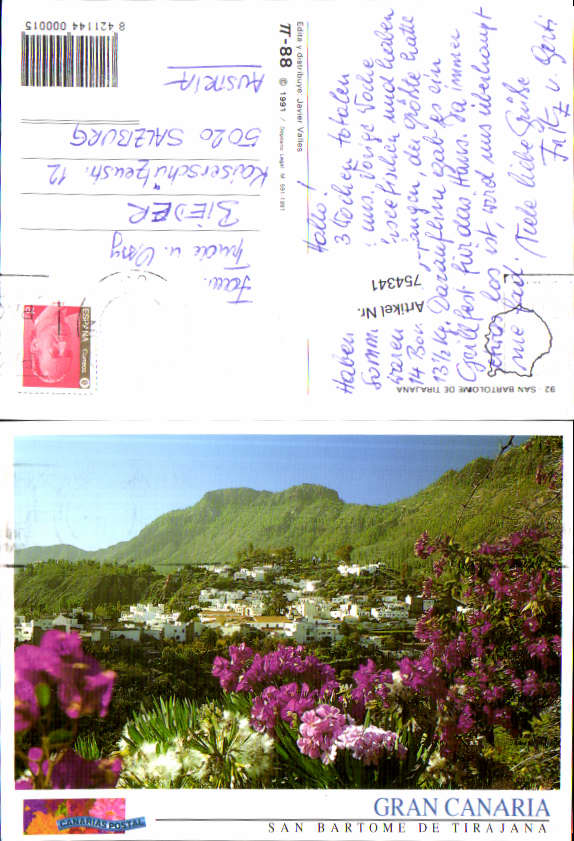 Hallo!
Haben 3 Wochen totalen
Sommer. Uns vorige Woche
waren
14 Bon der größte hatte
13½ kg. Daraufhin gab es ein
Grillfest für das Haus. Da immer
etwas los ist, wird uns überhaupt
nie fad. Viele liebe Grüße
Fritz u. Gerti
Artikel Nr.
754341
92 SAN BARTOLOME DE TIRAJANA
Edita y distribuye: Javier Valles
π-88 © 1991 / Deposito Legal M 591-1991
8 421144 000015
ESPAÑA
Correos
Fam.
BIEDER
Kaiserschützenstr. 12
5020 SALZBURG
AUSTRIA
CANARIAS POSTAL
GRAN CANARIA
SAN BARTOME DE TIRAJANA